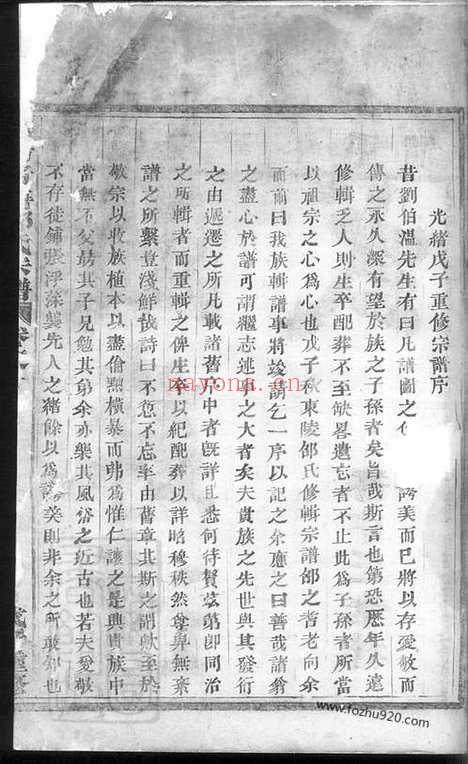 光緒戊子重修宗譜序
昔劉伯溫先生有曰凡譜圖之 美而已將以存愛敬而
傳之永久深有望於族之子孫者矣旨哉斯言也第恐歷年久遠
修輯乏人則生卒配葬不至缺畧遺忘者不止此為子孫者所當
以祖宗之心為心也戊子秋東陵邵氏修輯宗譜邵之耆老向余
而前曰我族輯譜事將竣請乞一序以記之余應之曰善哉諸翁
之盡心於譜可謂繼志述事之大者矣夫貴族之先世與其發衍
之由遞遷之所凡載諸舊序中者旣詳且悉何待贅茲第卽同治
之所輯者而重輯之俾生卒以紀配葬以詳昭穆秩然尊卑無紊
譜之所繫豈淺鮮哉詩曰不愆不忘率由舊章其斯之謂歟至於
敬宗以收族植本以盡倫黜橫暴而弗為惟仁讓之是興貴族中
當無不父朂其子兄勉其弟余亦樂其風俗之近古也若夫愛敬
不存徒鋪張浮藻襲先人之緒餘以為譜美則非余之所敢知也
宗譜
www.fozhu920.com
nayona.cn